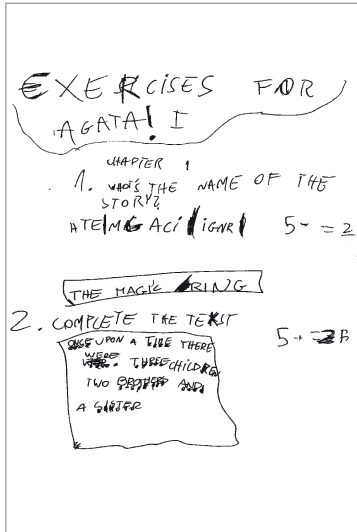 EXERCISES FOR
AGATA! I
CHAPTER 1
1. WHAT'S THE NAME OF THE
STORY?
ATEIMG ACI IGNR 5- = 2
THE MAGIC RING
2. COMPLETE THE TEXT
ONCE UPON A TIME THERE 5+
WERE THREE CHILDREN
TWO BROTHERS AND
A SISTER